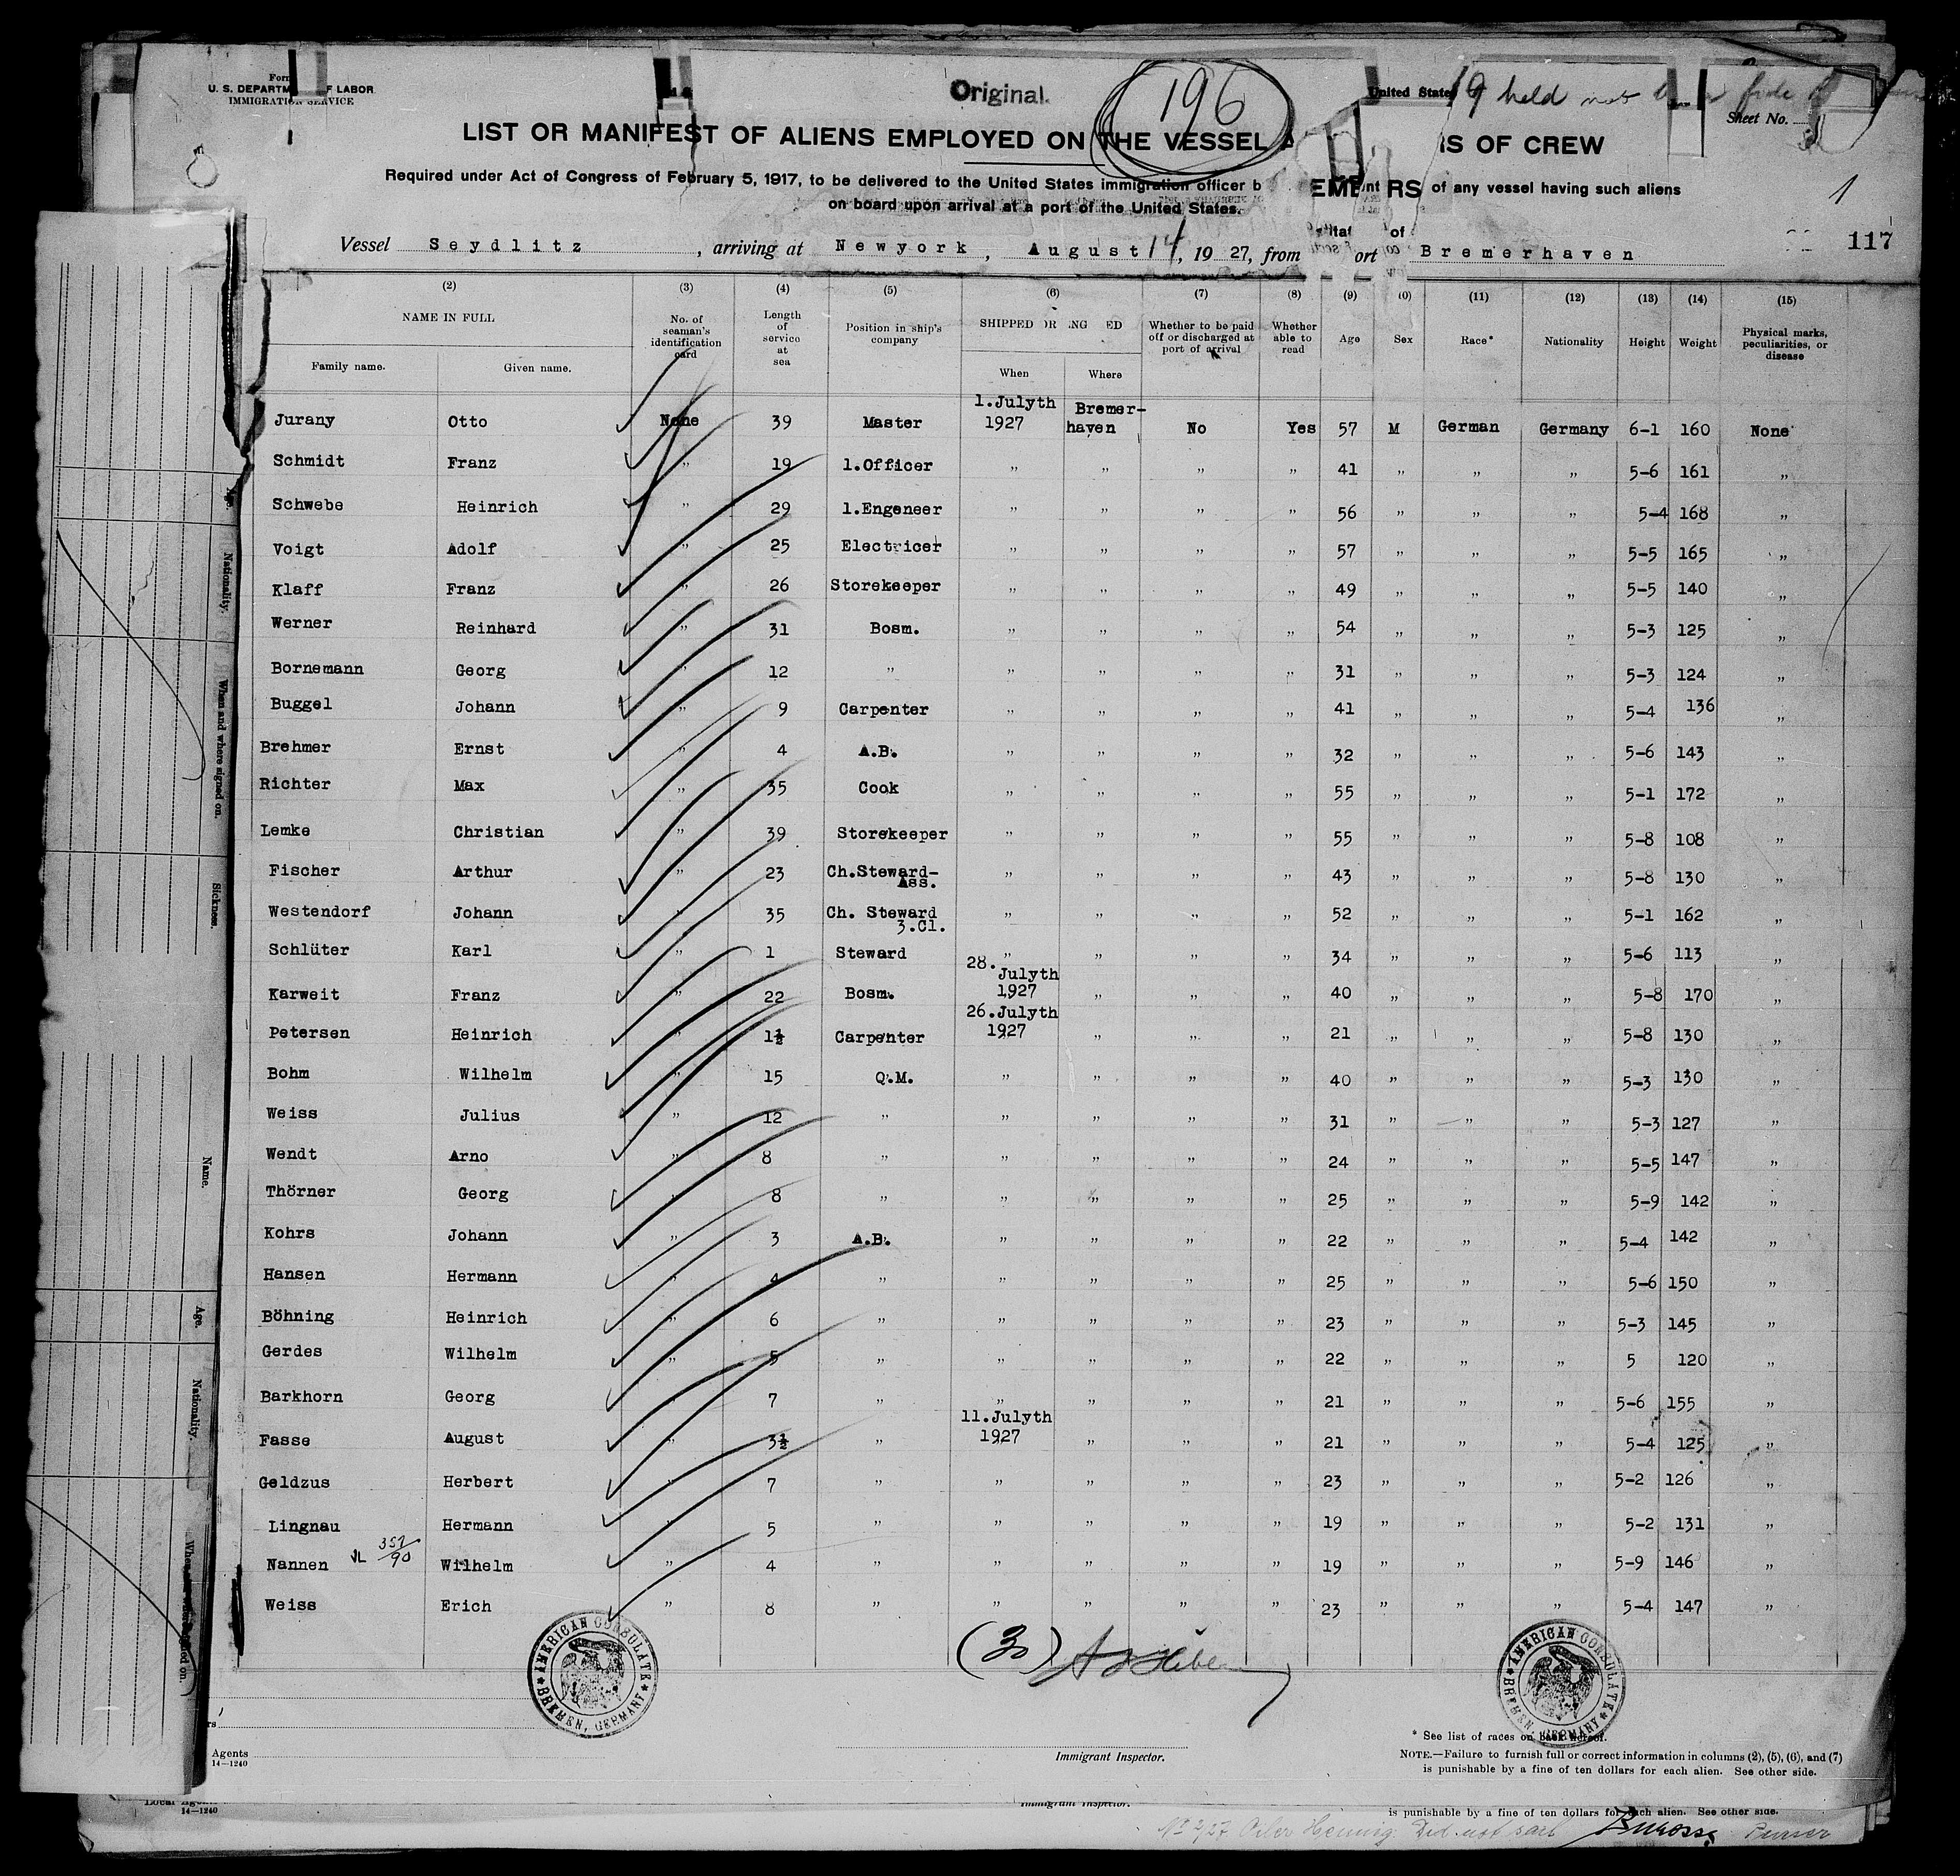 Form
U. S. DEPARTM F LABOR
IMMIGRATION SERVICE
Original.
196
United States
19 held not
Sheet No.
LIST OR MANIFEST OF ALIENS EMPLOYED ON THE VESSEL A RS OF CREW
Required under Act of Congress of February 5, 1917, to be delivered to the United States immigration officer b EMB nt RS of any vessel having such aliens
on board upon arrival at a port of the United States.
1
117
Vessel Seydlitz, arriving at Newyork, August 14, 1927, from ort Bremerhaven
(2) (3) (4) (5) (6) (7) (8) (9) (10) (11) (12) (13) (14) (15)
NAME IN FULL
Family name. Given name.
No. of seaman's identification card
Length of service at sea
Position in ship's company
SHIPPED OR ENG ED
When Where
Whether to be paid off or discharged at port of arrival
Whether able to read
Age Sex Race* Nationality Height Weight
Physical marks, peculiarities, or disease
Jurany Otto None 39 Master 1.Julyth 1927 Bremer-haven No Yes 57 M German Germany 6-1 160 None
Schmidt Franz " 19 1.Officer " " " " 41 " " " 5-6 161 "
Schwebe Heinrich " 29 1.Engeneer " " " " 56 " " " 5-4 168 "
Voigt Adolf " 25 Electricer " " " " 57 " " " 5-5 165 "
Klaff Franz " 26 Storekeeper " " " " 49 " " " 5-5 140 "
Werner Reinhard " 31 Bosm. " " " " 54 " " " 5-3 125 "
Bornemann Georg " 12 " " " " " 31 " " " 5-3 124 "
Buggel Johann " 9 Carpenter " " " " 41 " " " 5-4 136 "
Brehmer Ernst " 4 A.B. " " " " 32 " " " 5-6 143 "
Richter Max " 35 Cook " " " " 55 " " " 5-1 172 "
Lemke Christian " 39 Storekeeper " " " " 55 " " " 5-8 108 "
Fischer Arthur " 23 Ch.Steward-Ass. " " " " 43 " " " 5-8 130 "
Westendorf Johann " 35 Ch. Steward 3.Cl. " " " " 52 " " " 5-1 162 "
Schlüter Karl " 1 Steward " " " " 34 " " " 5-6 113 "
Karweit Franz " 22 Bosm. 28.Julyth 1927 " " " 40 " " " 5-8 170 "
Petersen Heinrich " 1½ Carpenter 26.Julyth 1927 " " " 21 " " " 5-8 130 "
Bohm Wilhelm " 15 Q.M. " " " " 40 " " " 5-3 130 "
Weiss Julius " 12 " " " " " 31 " " " 5-3 127 "
Wendt Arno " 8 " " " " " 24 " " " 5-5 147 "
Thörner Georg " 8 " " " " " 25 " " " 5-9 142 "
Kohrs Johann " 3 A.B. " " " " 22 " " " 5-4 142 "
Hansen Hermann " 4 " " " " " 25 " " " 5-6 150 "
Böhning Heinrich " 6 " " " " " 23 " " " 5-3 145 "
Gerdes Wilhelm " 5 " " " " " 22 " " " 5 120 "
Barkhorn Georg " 7 " " " " " 21 " " " 5-6 155 "
Fasse August " 3½ " 11.Julyth 1927 " " " 21 " " " 5-4 125 "
Geldzus Herbert " 7 " " " " " 23 " " " 5-2 126 "
Lingnau Hermann " 5 " " " " " 19 " " " 5-2 131 "
Nannen VL 357/90 Wilhelm " 4 " " " " " 19 " " " 5-9 146 "
Weiss Erich " 8 " " " " " 23 " " " 5-4 147 "
(30)
AMERICAN CONSULATE BREMEN, GERMANY
AMERICAN CONSULATE BREMEN, GERMANY
Agents
14—1240
Immigrant Inspector.
* See list of races on back hereof.
NOTE.—Failure to furnish full or correct information in columns (2), (5), (6), and (7)
is punishable by a fine of ten dollars for each alien. See other side.
Local Agents
14—1240
Immigrant Inspector.
is punishable by a fine of ten dollars for each alien. See other side.
Oiler Hennig Did not sail
Purser
Age.
Nationality.
When and where signed on.
Sickness.
Name.
Age.
Nationality.
When and where signed on.